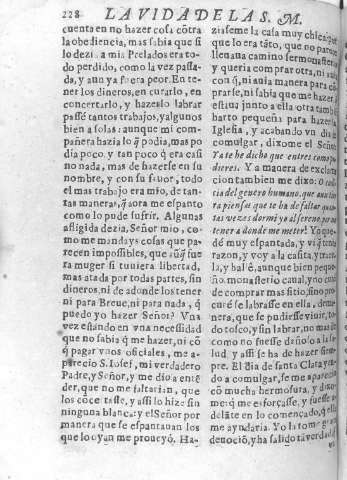 228 LA VIDA DE LAS. M.
cuenta en no hazer cosa cõtra
la obediencia, mas sabia que si
lo dezia a mis Prelados era to-
do perdido, como la vez passa-
da, y aun ya fuera peor. En te-
ner los dineros, en curarlo, en
concertarlo, y hazerlo labrar
passè tantos trabajos, y algunos
bien a solas: aunque mi com-
pañera hazia lo q̃ podia, mas po
dia poco, y tan poco q̃ era casi
no nada, mas de hazerse en su
nombre, y con su fauor, todo
el mas trabajo era mio, de tan-
tas maneras, q̃ aora me espanto
como lo pude sufrir. Algunas
afligida dezia, Señor mio, co-
mo me mandays cosas que pa-
recen impossibles, que aũq̃ fue
ra muger si tuuiera libertad,
mas atada por todas partes, sin
dineros, ni de adonde los tener
ni para Breue, ni para nada, q̃
puedo yo hazer Señor? Vna
vez estando en vna necessidad
que no sabia q̃ me hazer, ni cõ
q̃ pagar vnos oficiales, me a-
parecio S. Iosef, mi verdadero
Padre, y Señor, y me dio a entẽ
der, que no me faltarian, que
los cõcertasse, y assi lo hize sin
ninguna blanca: y el Señor por
manera que se espantauan los
que lo oyan me proueyò. Ha-
ziaseme la casa muy chica,
que lo era tãto, que no parec
lleuaua camino ser monasterio
y queria comprar otra, ni auia
con q̃, ni auia manera para cõ
prarse, ni sabia que me hazer
estaua junto a ella otra tambiẽ
harto pequeña para hazer la
Iglesia, y acabando vn dia de
comulgar, dixome el Señor
Ya te he dicho que entres como pu
dieres. Y a manera de exclama
cion tambien me dixo: O codi
cia del genero humano, que aun tie
rra piensas que te ha de faltar quan
tas vezes dormi yo al sereno, por no
tener a donde me meter! Yo que
dè muy espantada, y vi q̃ tenia
razon, y voy a la casita, y tracè
la, y hallè, aunque bien peque-
ño, monasterio caual, y no curè
de comprar mas sitio, sino pro
cure se labrasse en ella, de ma-
nera, que se pudiesse viuir, to-
do tosco, y sin labrar, no mas de
como no fuesse dañoso a la sa
lud, y assi se ha de hazer siem-
pre. El dia de santa Clara yen
do a comulgar, se me aparecio
con mucha hermosura, y dixo
me: q̃ me esforçasse, y fuesse a
delãte en lo començado, q̃ ella
me ayudaria. Yo la tome gran
deuocio, y ha salido tã verdad